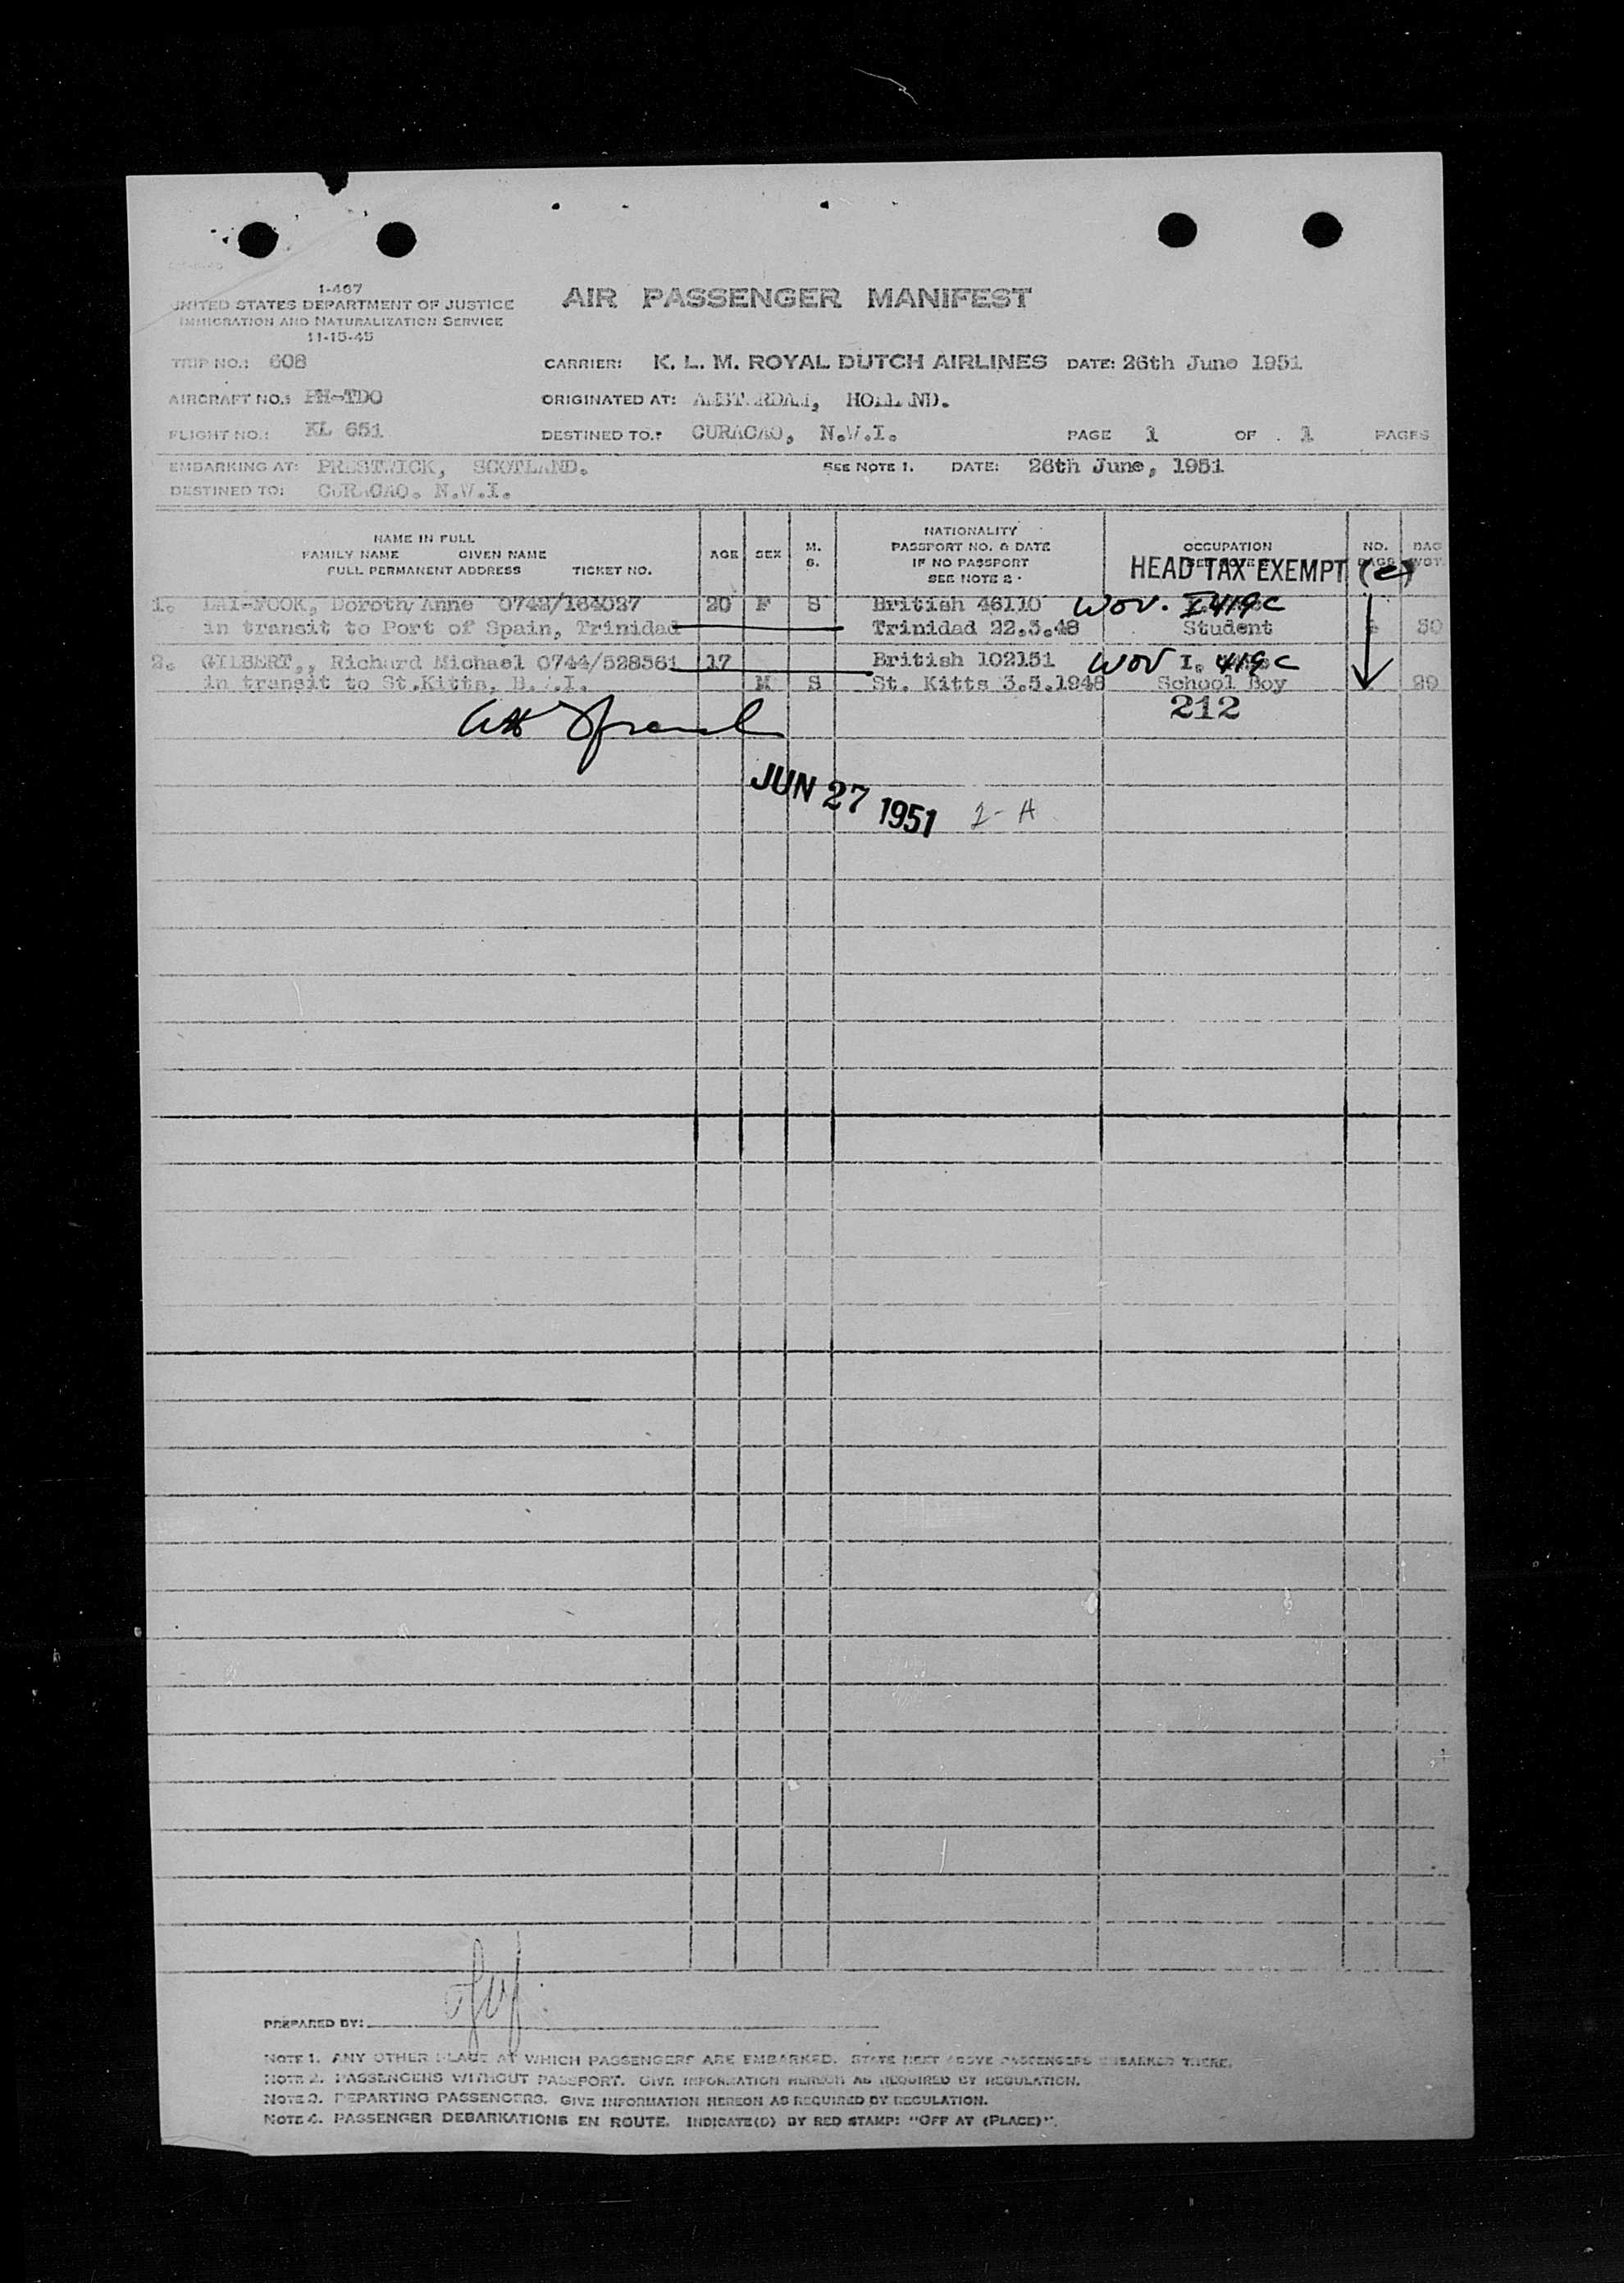 I-467
UNITED STATES DEPARTMENT OF JUSTICE
IMMIGRATION AND NATURALIZATION SERVICE
11-15-45
AIR PASSENGER MANIFEST
TRIP NO.: 608 CARRIER: K. L. M. ROYAL DUTCH AIRLINES DATE: 26th June 1951
AIRCRAFT NO.: PH-TDO ORIGINATED AT: AMSTERDAM, HOLLAND.
FLIGHT NO.: KL 651 DESTINED TO.: CURACAO, N.W.I. PAGE 1 OF 1 PAGES
EMBARKING AT: PRESTWICK, SCOTLAND. SEE NOTE 1. DATE: 26th June, 1951
DESTINED TO: CURACAO. N.W.I.
NAME IN FULL
FAMILY NAME GIVEN NAME
FULL PERMANENT ADDRESS TICKET NO.
AGE
SEX
M.
S.
NATIONALITY
PASSPORT NO. & DATE
IF NO PASSPORT
SEE NOTE 2
OCCUPATION
NO.
BAGS
BAG
WGT.
HEAD TAX EXEMPT (c)
1. LAI-FOOK, Dorothy Anne 0742/164027 20 F S British 46110 WOV. I 419 C
in transit to Port of Spain, Trinidad Trinidad 22.5.48 Student 30
2. GILBERT,, Richard Michael 0744/528561 17 British 102151 WOV I. 419 C
in transit to St.Kitts, B.W.I. M S St. Kitts 3.5.1948 School Boy 20
212
JUN 27 1951 2-A
PREPARED BY:
NOTE 1. ANY OTHER PLACE AT WHICH PASSENGERS ARE EMBARKED. STATE NEXT ABOVE PASSENGERS EMBARKED THERE.
NOTE 2. PASSENGERS WITHOUT PASSPORT. GIVE INFORMATION HEREON AS REQUIRED BY REGULATION.
NOTE 3. DEPARTING PASSENGERS. GIVE INFORMATION HEREON AS REQUIRED BY REGULATION.
NOTE 4. PASSENGER DEBARKATIONS EN ROUTE. INDICATE(D) BY RED STAMP: "OFF AT (PLACE)".